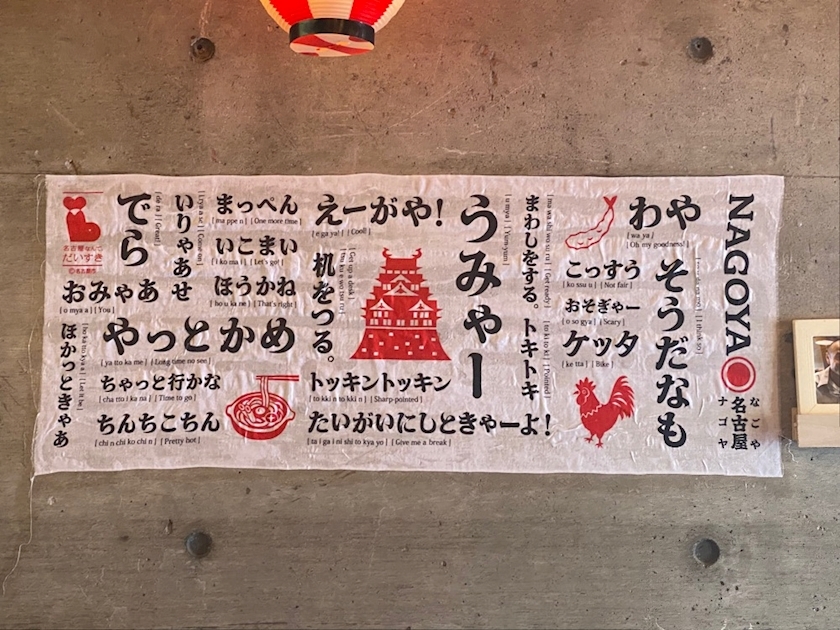 NAGOYA
なごや
名古屋
ナゴヤ
わや
[ wa ya ]
[ Oh my goodness! ]
そうだなも
こっすう
[ ko ssu u ] [ Not fair ]
おそぎゃー
[ o so gya ] [ Scary ]
ケッタ
[ ke tta ] [ Bike ]
まわしをする。
[ ma wa shi wo su ru ] [ Get ready ]
トキトキ
[ to ki to ki ] [ Pointed ]
うみゃー
[ u mya ] [ Yum-yum ]
えーがや!
[ e ga ya! ] [ Cool! ]
机をつる。
[ tsu ku e wo tsu ru ] [ Get up a desk ]
まっぺん
[ ma ppe n ] [ One more time ]
いこまい
[ i ko ma i ] [ Let's go! ]
ほうかね
[ ho u ka ne ] [ That's right ]
いりゃあせ
[ i rya a se ] [ Come on ]
でら
[ de ra ] [ Great ]
名古屋なんて
だいすき
おみゃあ
[ o mya a ] [ You ]
やっとかめ
[ ya tto ka me ] [ Long time no see ]
ほかっときゃあ
[ ho ka tto kya a ] [ Let it be ]
ちゃっと行かな
[ cha tto i ka na ] [ Time to go ]
ちんちこちん
[ chi n chi ko chi n ] [ Pretty hot ]
トッキントッキン
[ to kki n to kki n ] [ Sharp-pointed ]
たいがいにしときゃーよ!
[ ta i ga i ni shi to kya yo ] [ Give me a break ]